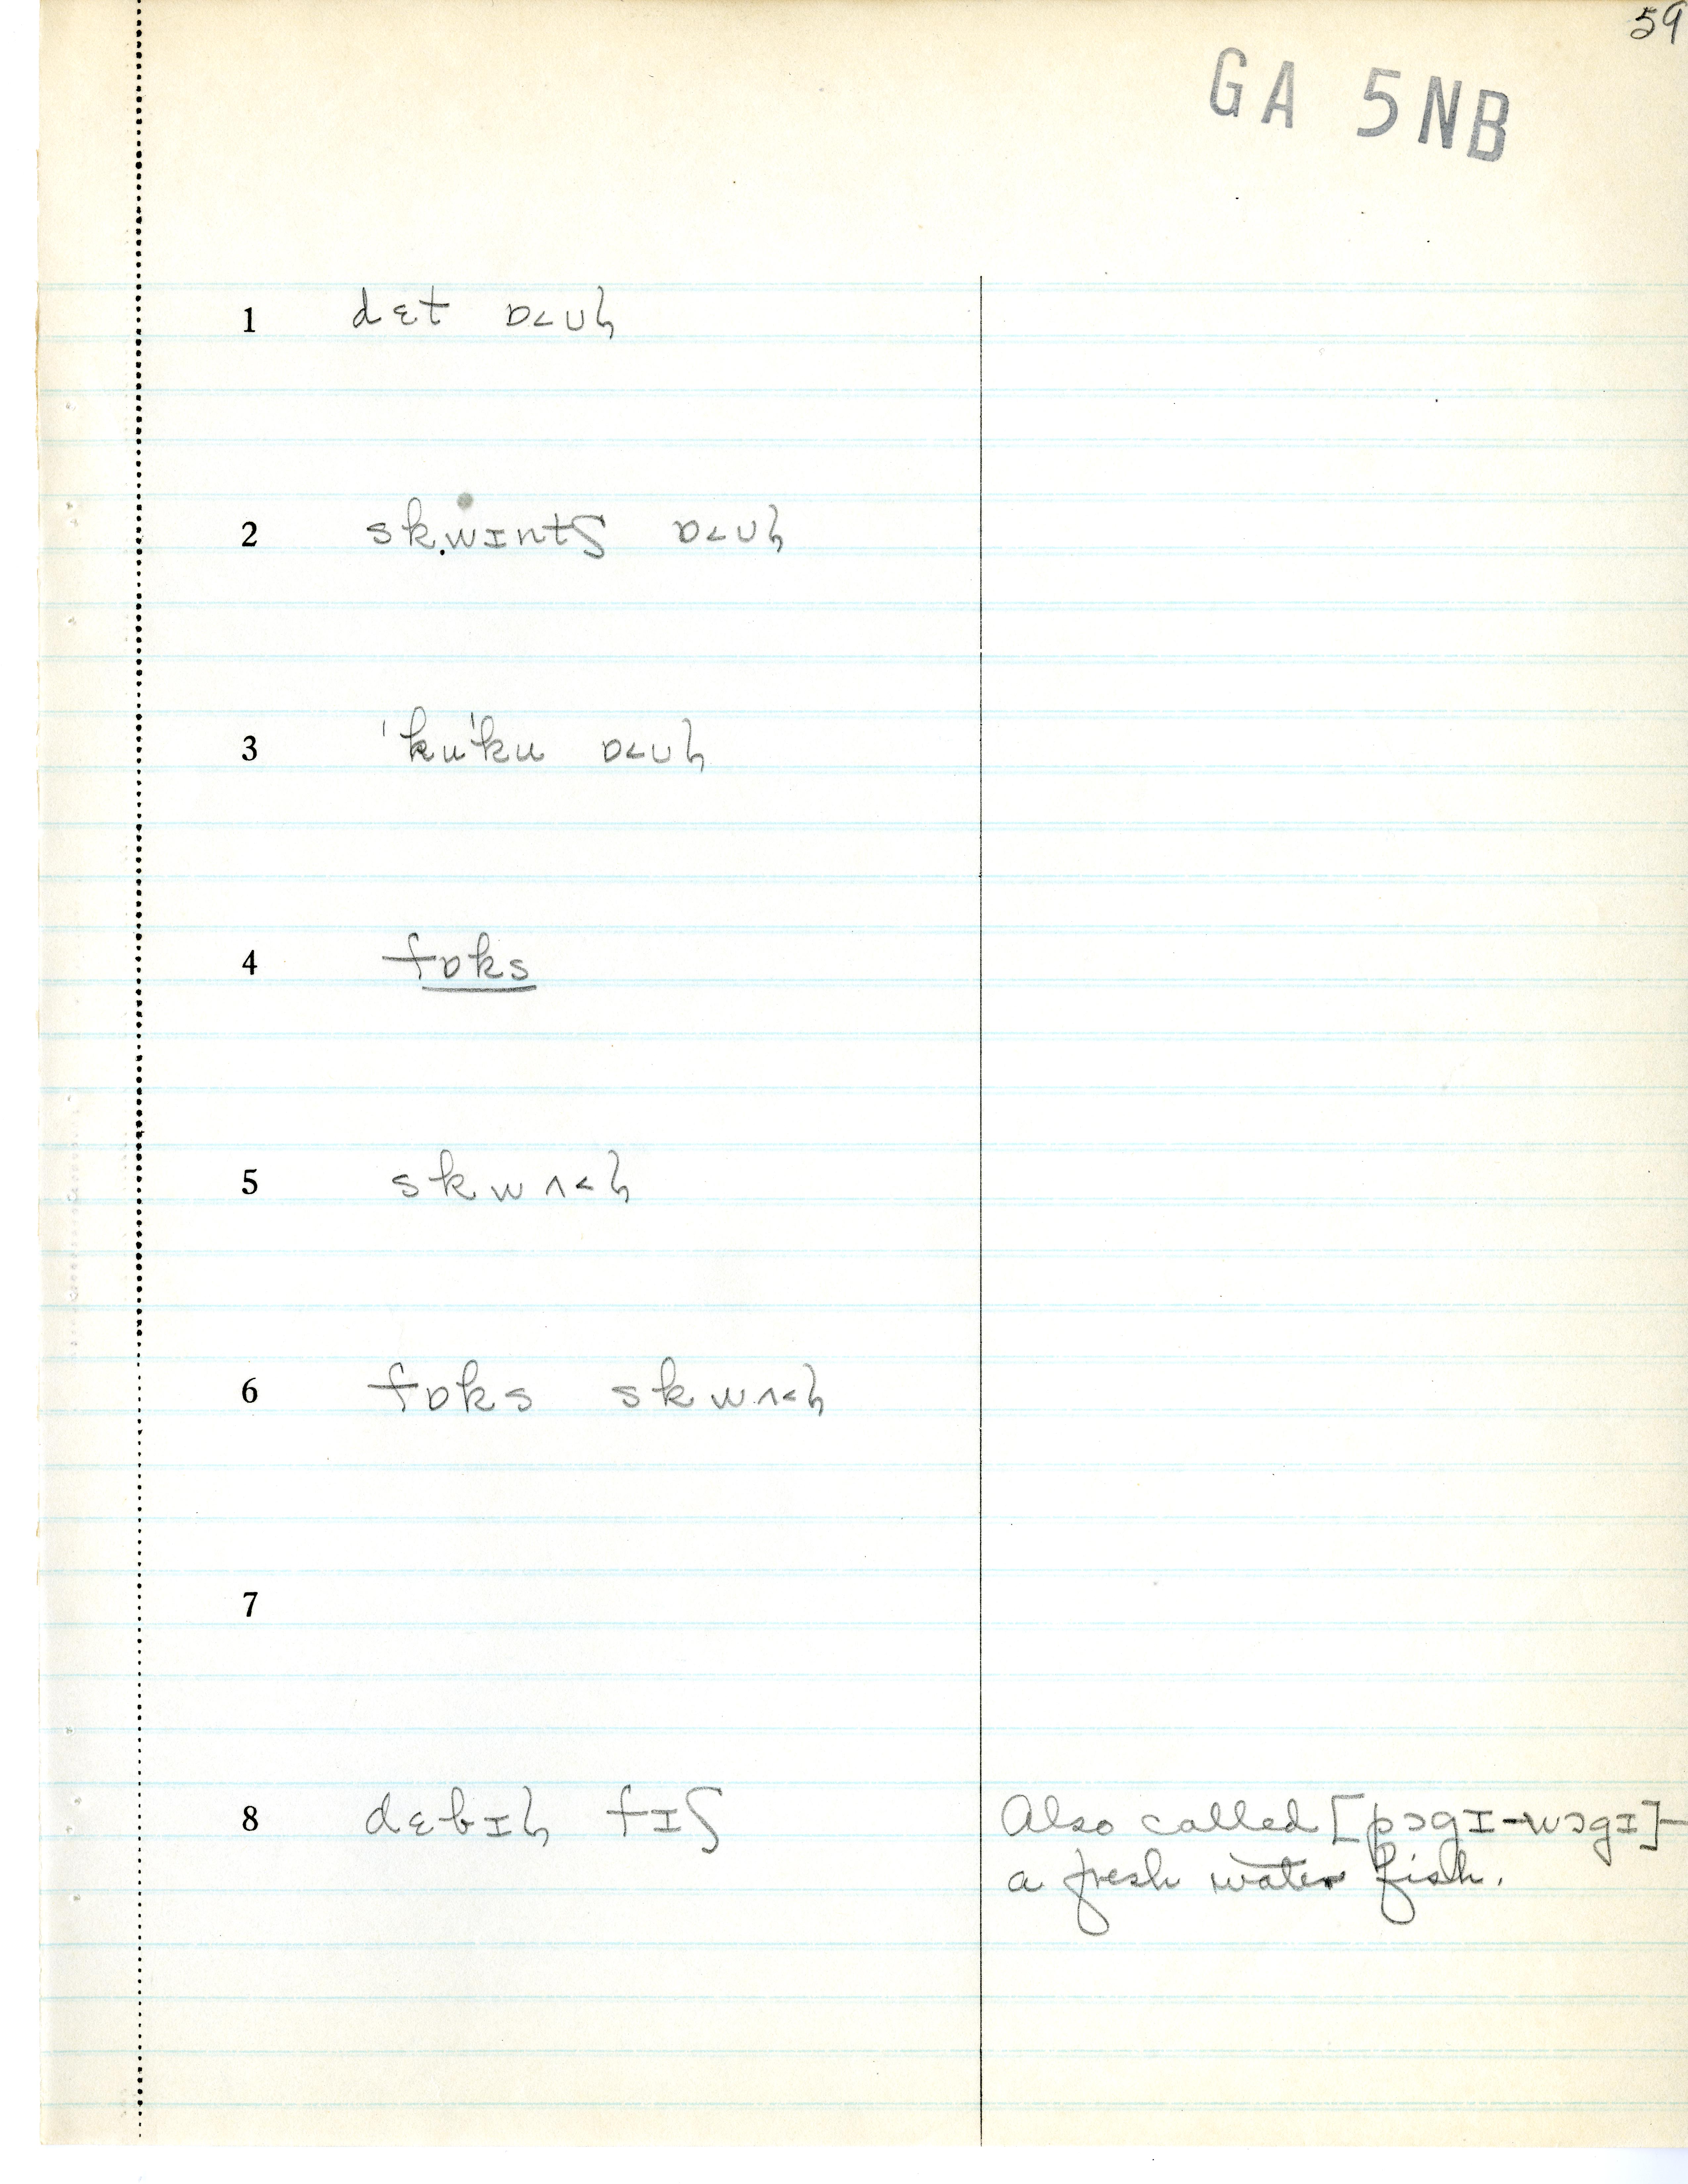 59
GA 5NB
1 dɛt ɒ˂ʊɫ
2 sk.wɪntʃ ɒ˂ʊɫ
3 ˈkuˈku ɒ˂ʊɫ
4 fɒks
5 skwʌ˂ɫ
6 fɒks skwʌ˂ɫ
7
8 dɛbɪɫ fɪʃ Also called [pɔgɪ-wɔgɪ]-
a fresh water fish.